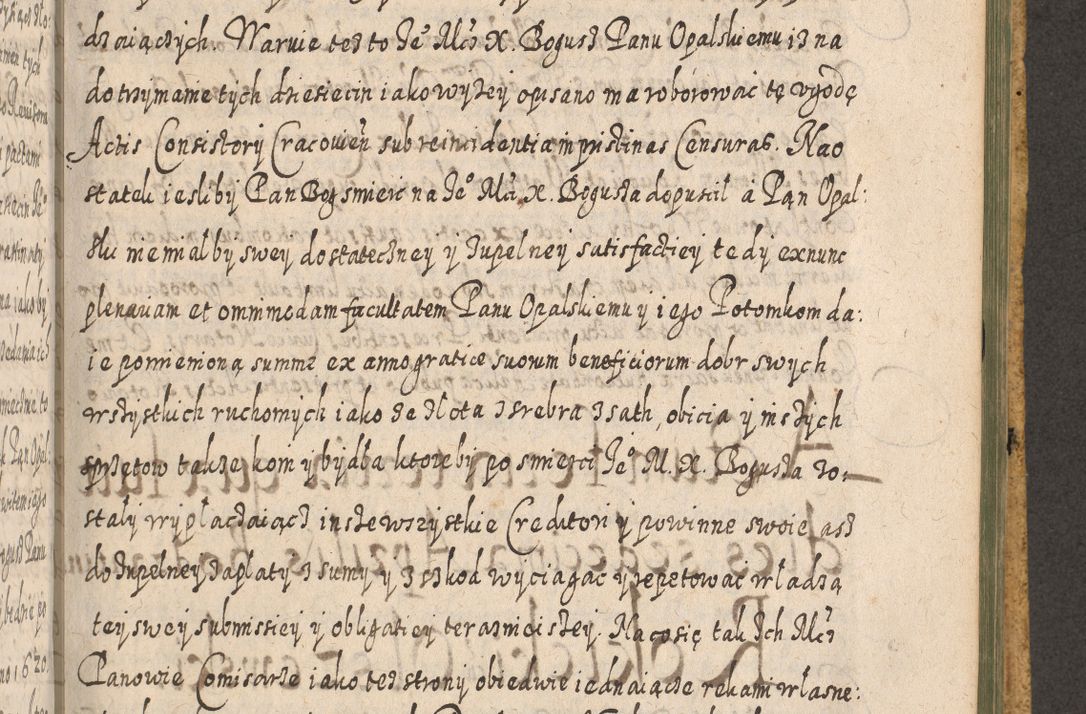 dzaiączych. Waruie też to Jeo Mci X. Bogusz Panu Opalskiemu iż na
dotrzymame tych dziesiecin iako wyżey opisano ma roborować tę vgodę
Actis Consistory Cracouien sub reincidentia in pristinas Censuras. Nao
statek iesliby Pan Bog smierc na Jeo Mci X. Bogusza dopuscił á Pąn Opal:
ski nie miałby swey dostateczney y zupełney satisfactiey tedy exnunc
plenariam et omnimodam facultatem Panu Opalskiemu y iego Potomkom da:
ie pomienioną summę ex annogratice suorum beneficiorum dobr swych
wszystkich ruchomych iako ze złota zsrebra zsath, obicia y inszych
sprzętow także kom y bydła ktoreby po smierci Jeo M. X. Bogusza zo-
stały wypłaczaiącz insze wszystkie Creditory y powinne swoie asz
do zupełney zapłaty z sumy y z szkod wyciągac y repetować władzą
tey swey submissiey y obligatiey terazmeiszey. Nacosię tak Ich Mcz
Panowie Comisarze iako też strony obiedwie iednaiącze rekami własne: